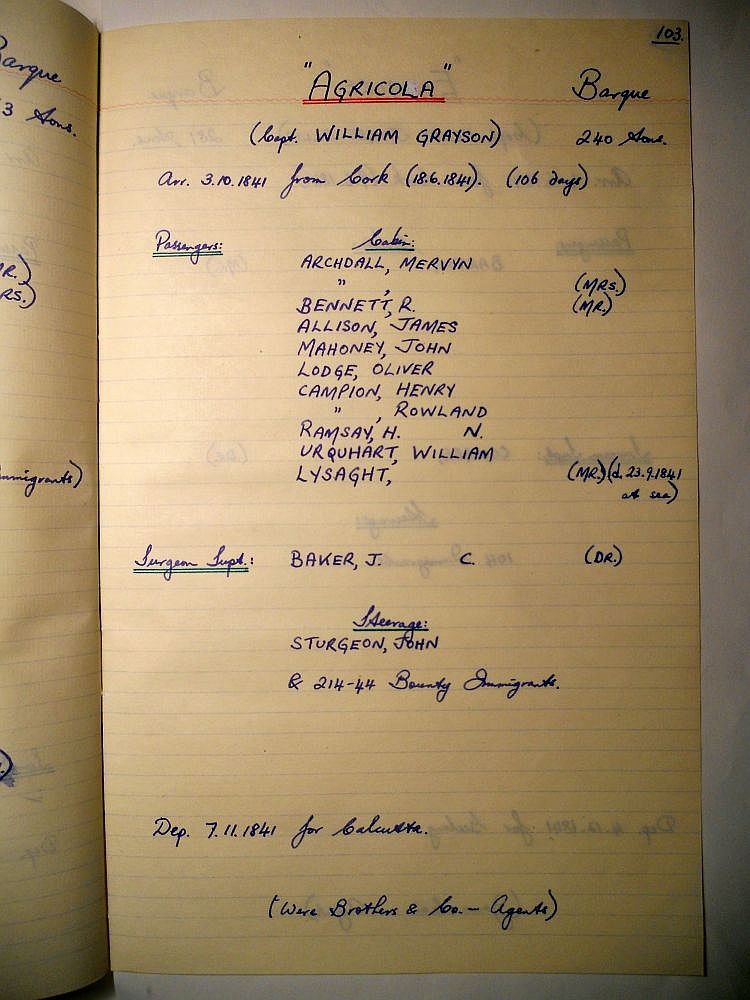 Barque
3 tons.
MR.)
RS.)
mmigrants)
103.
"AGRICOLA" Barque
(Capt. WILLIAM GRAYSON) 240 tons.
Arr. 3.10.1841 from Cork (18.6.1841). (106 days)
Passengers: Cabin:
ARCHDALL, MERVYN
" , (MRS.)
BENNETT, R. (MR.)
ALLISON, JAMES
MAHONEY, JOHN
LODGE, OLIVER
CAMPION, HENRY
" , ROWLAND
RAMSAY, H. N.
URQUHART, WILLIAM
LYSAGHT, (MR.) (d. 23.9.1841
at sea)
Surgeon Supt.: BAKER, J. C. (DR.)
Steerage:
STURGEON, JOHN
& 214-44 Bounty Immigrants.
Dep. 7.11.1841 for Calcutta.
(Were Brothers & Co. - Agents)